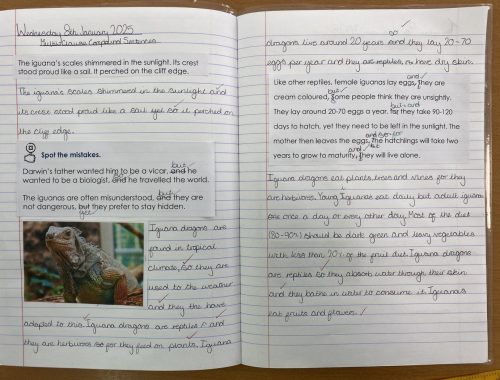 Wednesday 8th January 2025
Multi-Clause Compound Sentences
The iguana's scales shimmered in the sunlight. Its crest
stood proud like a sail. It perched on the cliff edge.
The iguana's scales shimmered in the sunlight and
its crest stood proud like a sail yet so it perched on
the cliff edge.
Spot the mistakes.
but
Darwin's father wanted him to be a vicar, and he
wanted to be a biologist, and he travelled the world.
but
The iguanas are often misunderstood, and they are
not dangerous, but they prefer to stay hidden.
yet
Iguana dragons are
found in tropical
climate, so they are
used to the weather
and they the have
adapted to this. Iguana dragons are reptiles and
they are herbivores so for they feed on plants. Iguana
so
dragons live around 20 years and they lay 20-70
eggs per year and they are reptiles, so have dry skin.
and
Like other reptiles, female iguanas lay eggs. They are
but
cream coloured. Some people think they are unsightly.
but
They lay around 20-70 eggs a year, for they take 90-120
days to hatch, yet they need to be left in the sunlight. The
mother then leaves the eggs. The hatchlings will take two
and
years to grow to maturity. They will live alone.
Iguana dragons eat plants, trees and vines for they
are herbivores. Young Iguanas eat daily but adult iguana
one once a day or every other day. Most of the diet
(80-90%) should be dark green and leavy vegetables
with less than 20% of the fruit diet. Iguana dragons
are reptiles so they absorb water through their skin
and they bathe in water to consume it. Iguanas
eat fruits and flowers.